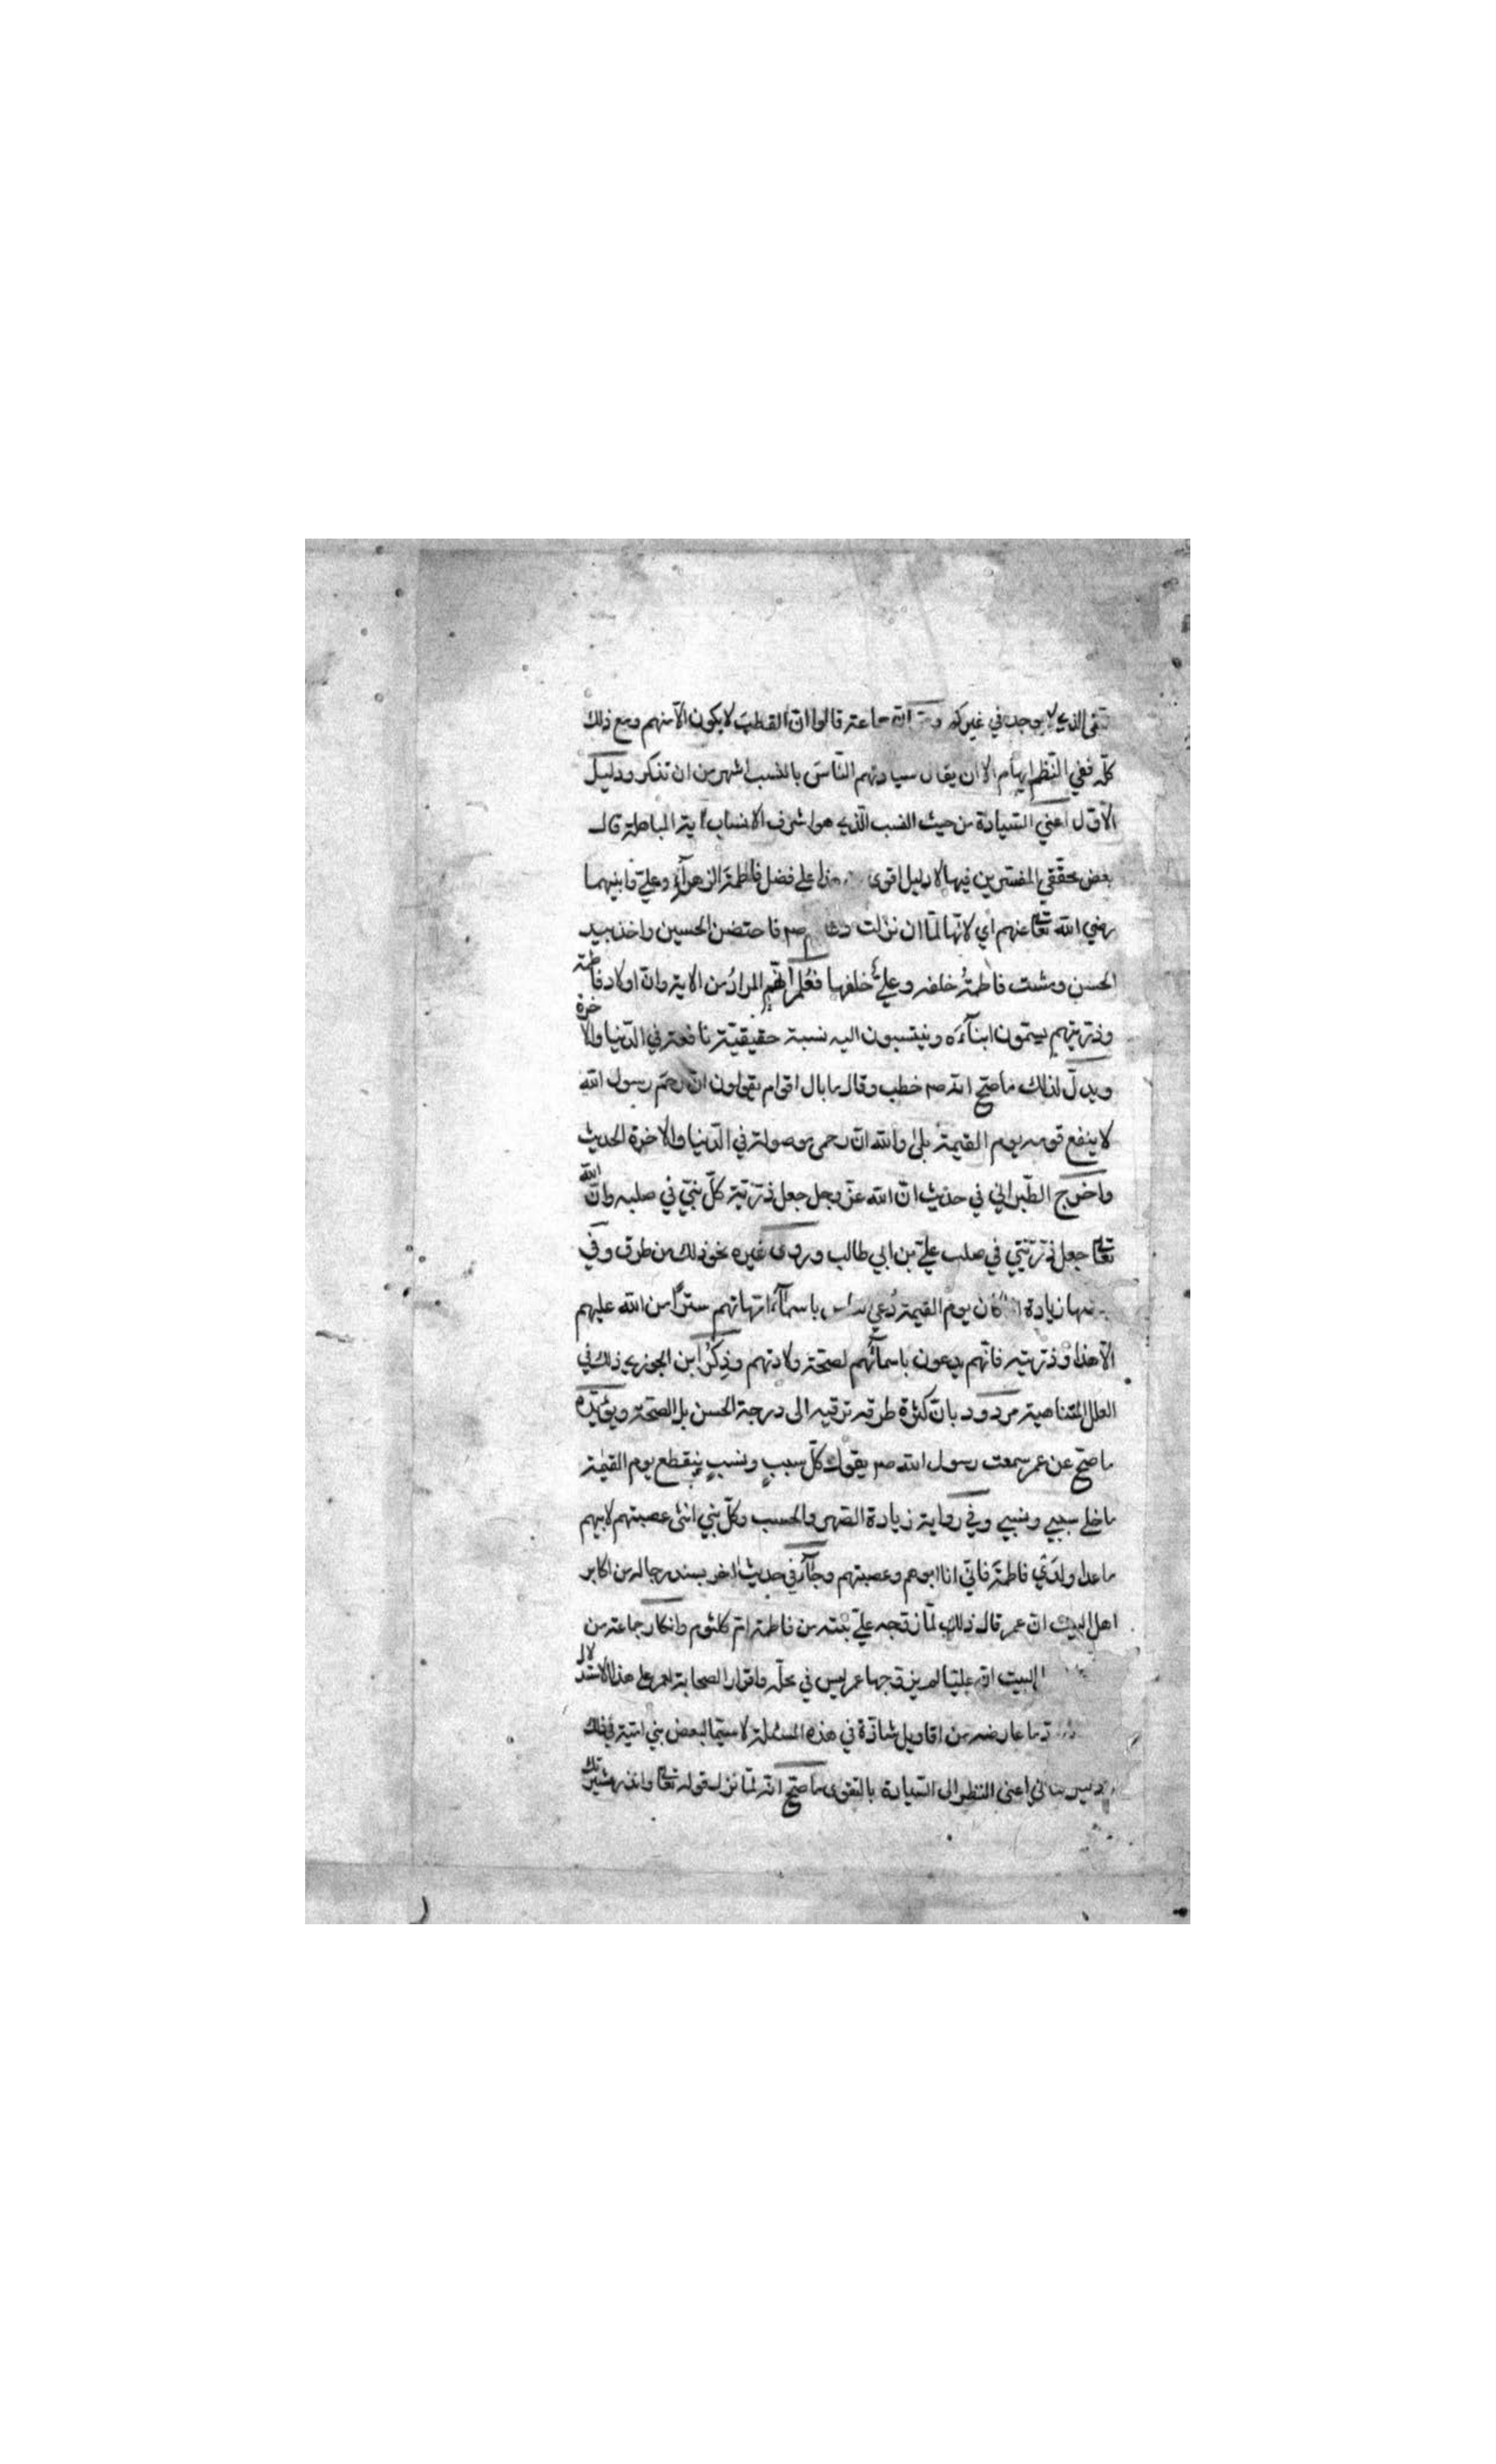 الذي لا يوجد في غيركم جماعة قالوا انّ القطب لا يكون الّا منهم ومع ذلك
كلّه ففي النّظم ايهام الا ان يقال سيادتهم النّاس بالنسب اشهر من ان تذكر ودليل
الاوّل اعني السّيادة من حيث النسب الّذي هو اشرف الانساب اية المباهلة قال
بعض محقّقي المفسّرين فيها لا دليل اقوى من هذا على فضل فاطمة الزهرآء وعليّ وابنيهما
رضي الله تعا عنهم اي لانّها لمّا ان نزلت دعاهم صم فاحتضن الحسين واخذ بيد
الحسن ومشت فاطمةُ خلفه وعليٌّ خلفها فعُلم انّهم المرادُ من الاية وانّ اولاد فاطمة
وذرّيتهم يسمّون ابنآءَه وينتسبون اليه نسبة حقيقيّة نافعة في الدّنيا والآخرة
ويدلّ لذلك ما صحّ انه صم خطب وقال ما بال اقوام يقولون انّ رحم رسول الله
لا ينفع قومه يوم القيمة بلى والله انّ رحمي موصولة في الدّنيا والاخرة الحديث
واخرج الطّبراني في حديث انّ الله عزّ وجل جعل ذرّيّة كلّ نبيّ في صلبه وانّ الله
تعا جعل ذرّيّتي في صلب عليّ بن ابي طالب وروى غيره نحو ذلك من طرق وفي
زيادة اذا كان يوم القيمة دُعي الناس باسمآء امّهاتهم سترًا من الله عليهم
الّا هذا وذرّيته فانّهم يدعون باسمآئهم لصحّة ولادتهم وذِكْرُ ابن الجوزي ذلك في
العلل المتناهية مردود بانّ كثرة طرقه ترقيه الى درجة الحسن بل الصحّة ويؤيّده
ما صحّ عن عمر سمعت رسول الله صم يقول كلّ سببٍ ونسبٍ ينقطع يوم القيٰمة
ما خلى سببي ونسبي وفي رواية زيادة الصّهر والحسب وكلّ بني انثى عصبتهم لابيهم
ما عدا ولدَي فاطمة فانّي انا ابوهم وعصبتهم وجآء في حديث اخر بسند رجاله من اكابر
اهل البيت انّ عمر قال ذلك لمّا زوّجه عليّ بنته من فاطمة امّ كلثوم وانكار جماعة من
البيت انّ عليّا لم يزوّجها عمر ليس في محلّه واقرار الصحابة لعمر على هذا الاستدلال
ما عارضه من اقاويل شاذّة في هذه المسئلة لا سيّما لبعض بني اميّة في ذلك
اعني النظر الى السّيادة بالتقوى ما صحّ انّه لمّا نزل قوله تعا وانذر عشيرتك